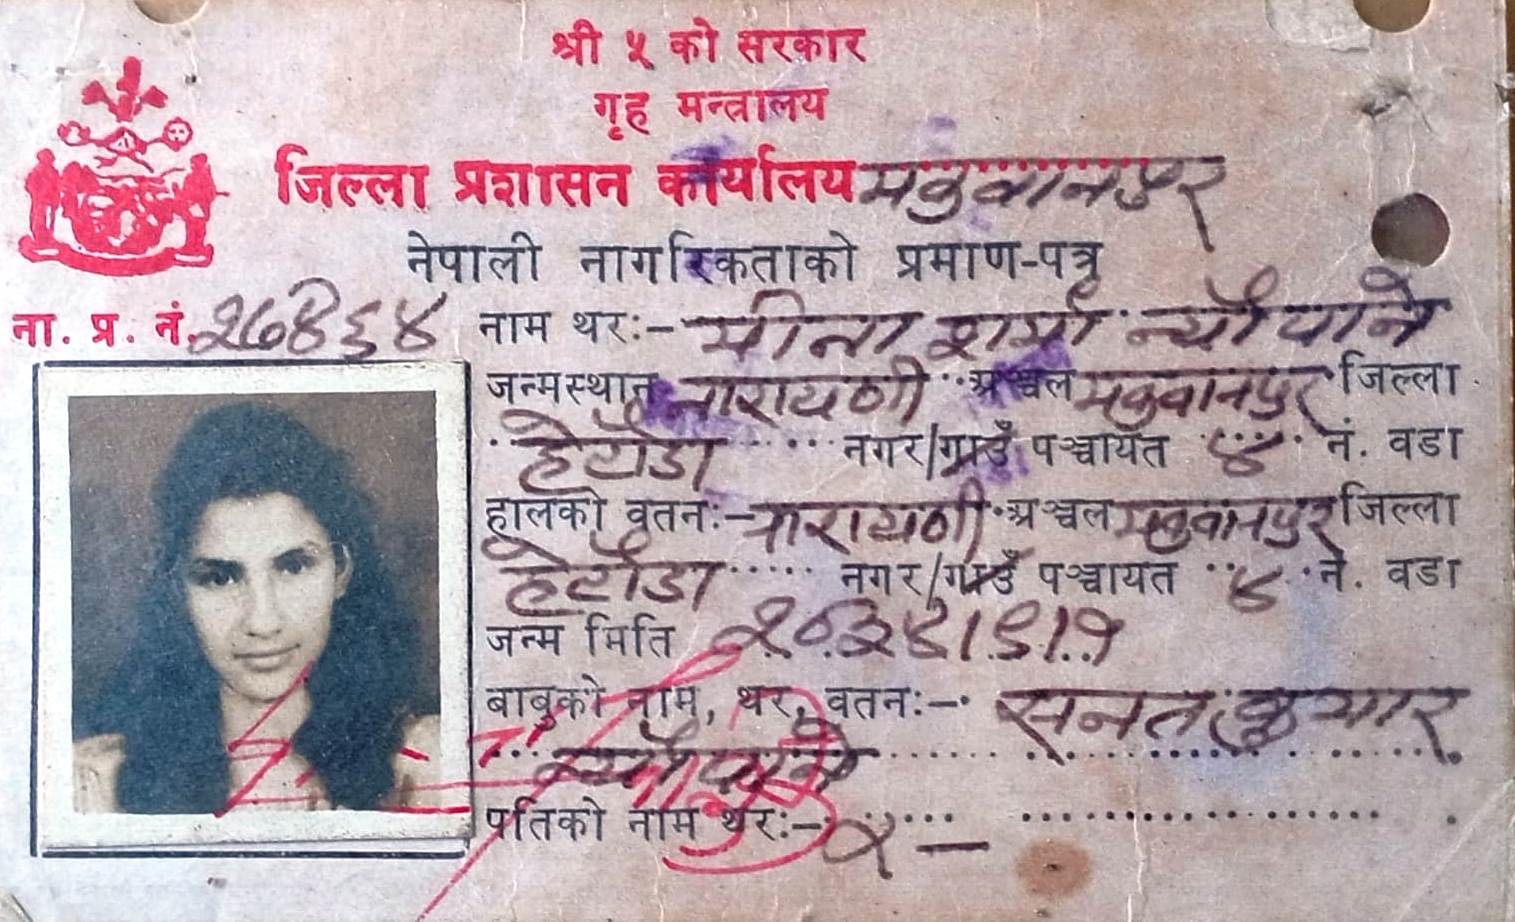 श्री ५ को सरकार
गृह मन्त्रालय
जिल्ला प्रशासन कार्यालय मकवानपुर
नेपाली नागरिकताको प्रमाण-पत्र
ना. प्र. नं. २७४६४ नाम थरः- मीना शर्मा न्यौपाने
जन्मस्थान नारायणी अञ्चल मकवानपुर जिल्ला
हेटौडा नगर/गाउँ पञ्चायत ४ नं. वडा
हालको वतनः- नारायणी अञ्चल मकवानपुर जिल्ला
हेटौडा नगर/गाउँ पञ्चायत ४ नं. वडा
जन्म मिति
बाबुको नाम, थर, वतनः- सनत कुमार
न्यौपाने
पतिको नाम थरः- × –